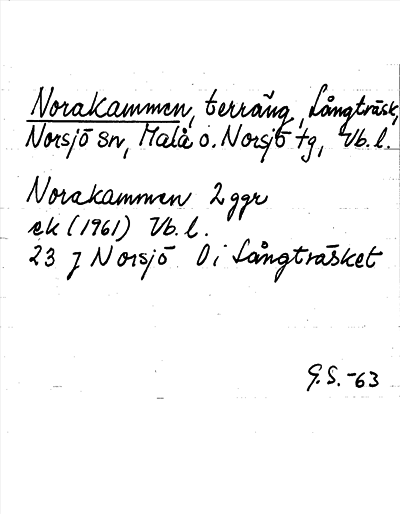 Norakammen, terräng, Långträsk,
Norsjö sn, Malå o. Norsjö tg, Vb. l.
Norakammen 2 ggr
ek (1961) Vb. l.
23 J Norsjö O i Långträsket
G.S. -63